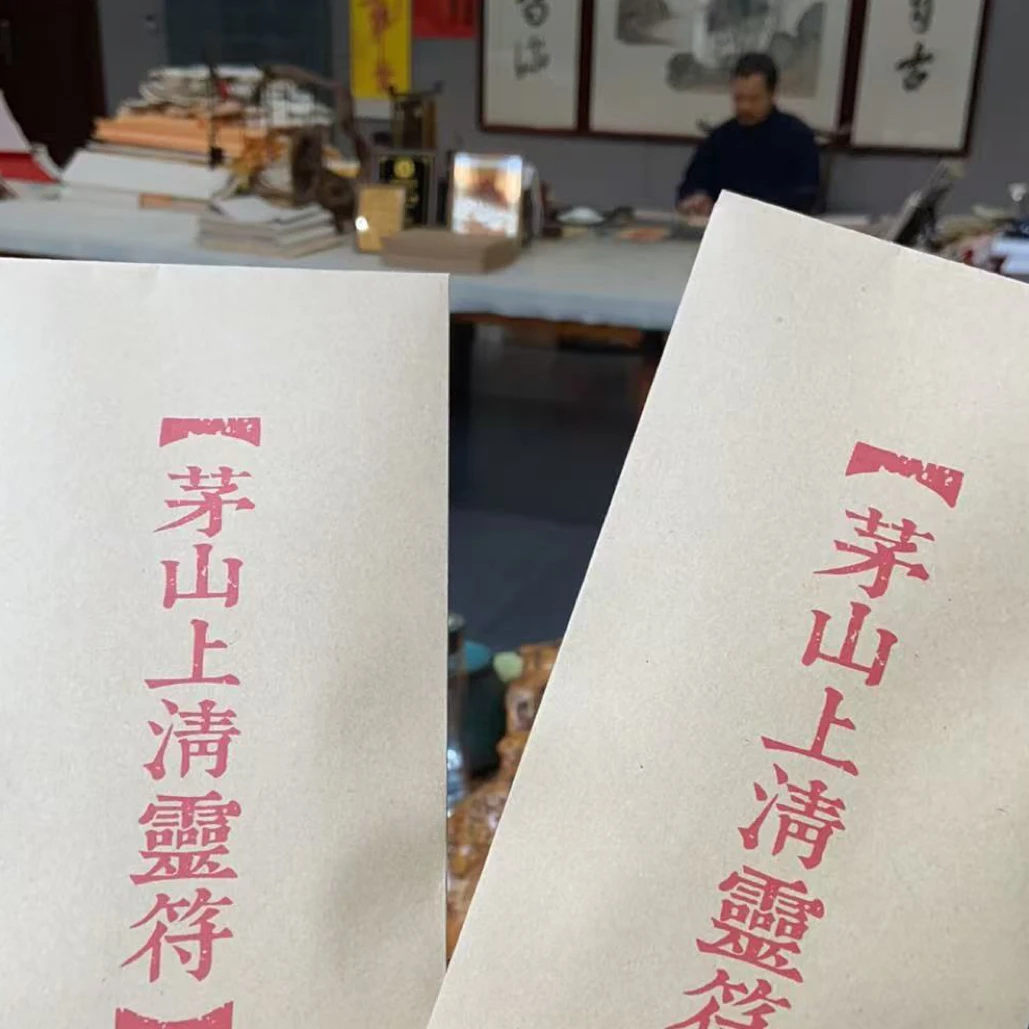 【茅山上清靈符】
【茅山上清靈符
古